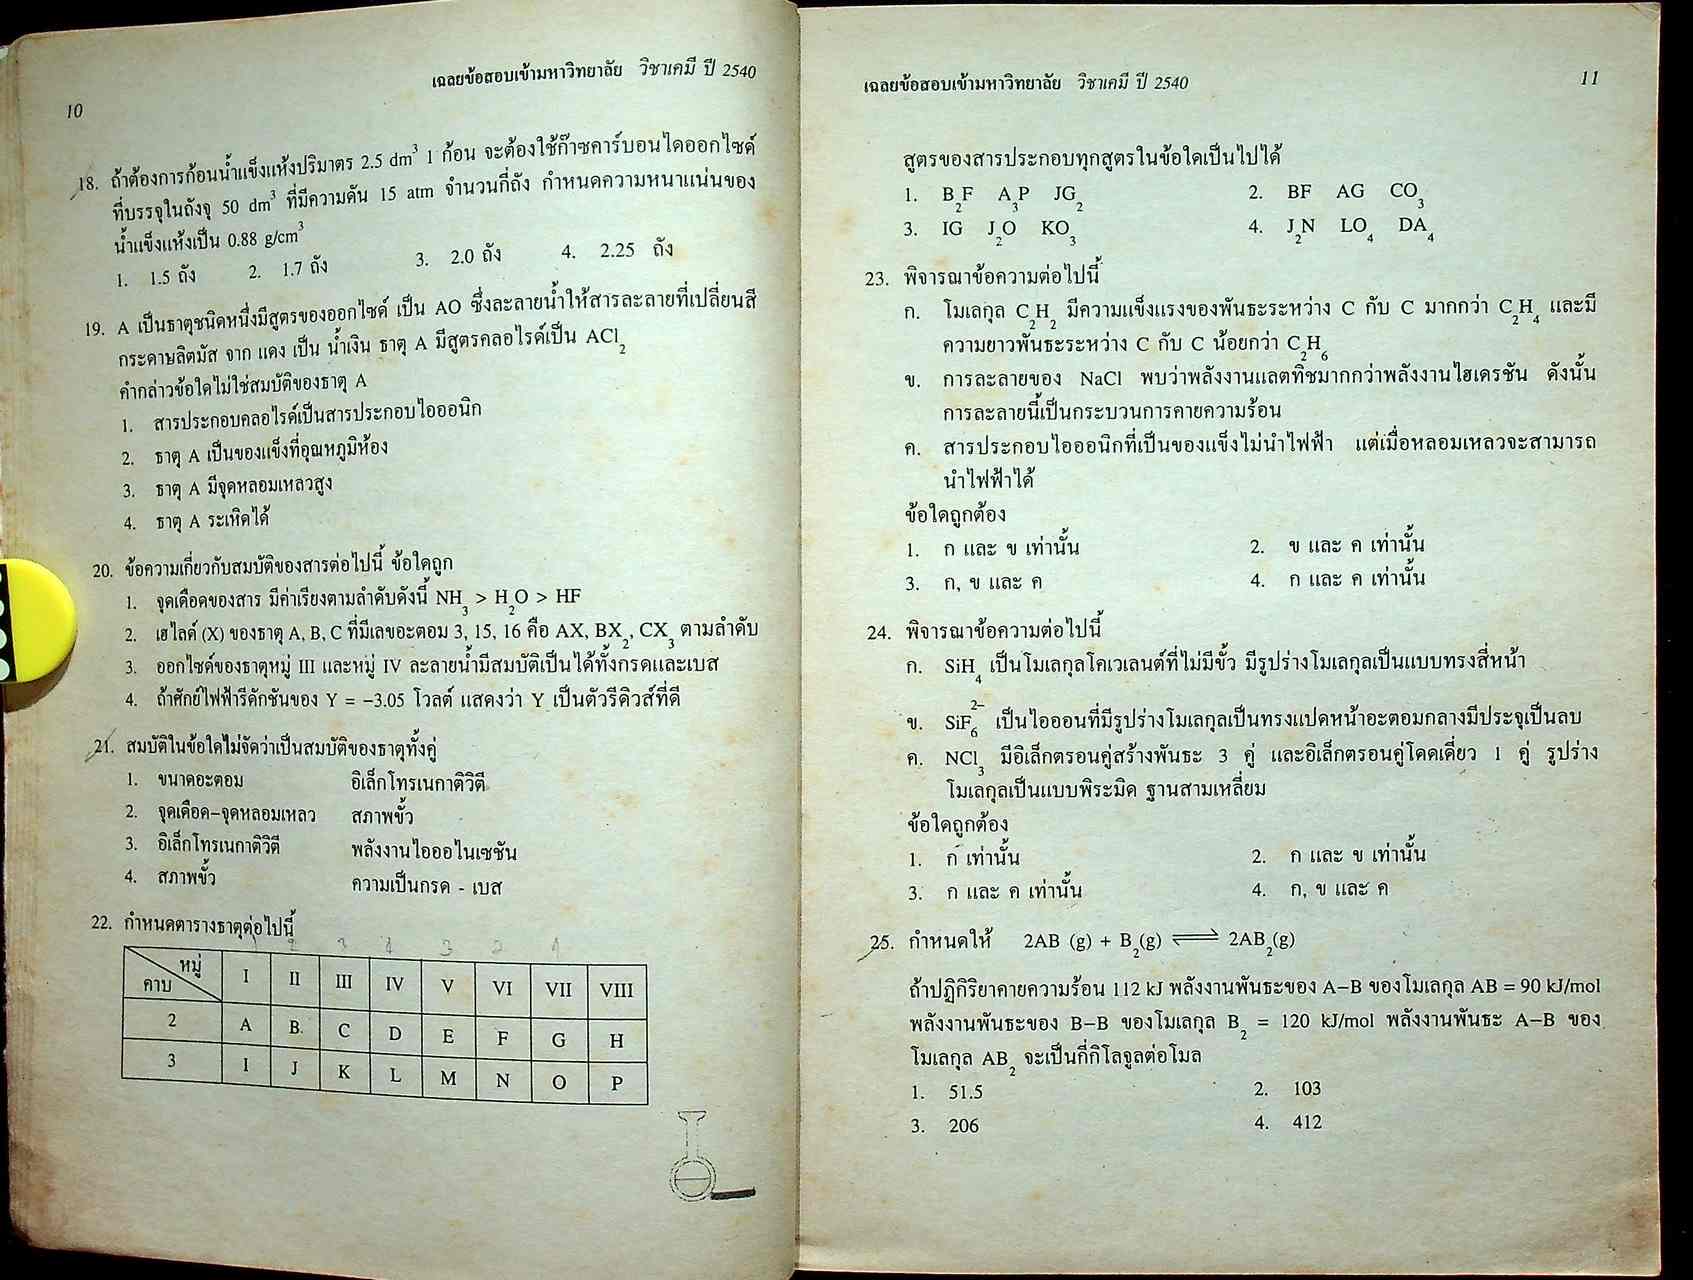 10
เฉลยข้อสอบเข้ามหาวิทยาลัย วิชาเคมี ปี 2540
18. ถ้าต้องการก้อนน้ำแข็งแห้งปริมาตร 2.5 dm³ 1 ก้อน จะต้องใช้ก๊าซคาร์บอนไดออกไซด์
ที่บรรจุในถังจุ 50 dm³ ที่มีความดัน 15 atm จำนวนกี่ถัง กำหนดความหนาแน่นของ
น้ำแข็งแห้งเป็น 0.88 g/cm³
1. 1.5 ถัง 2. 1.7 ถัง 3. 2.0 ถัง 4. 2.25 ถัง
19. A เป็นธาตุชนิดหนึ่งมีสูตรของออกไซด์ เป็น AO ซึ่งละลายน้ำให้สารละลายที่เปลี่ยนสี
กระดาษลิตมัส จาก แดง เป็น น้ำเงิน ธาตุ A มีสูตรคลอไรด์เป็น ACl₂
คำกล่าวข้อใดไม่ใช่สมบัติของธาตุ A
1. สารประกอบคลอไรด์เป็นสารประกอบไอออนิก
2. ธาตุ A เป็นของแข็งที่อุณหภูมิห้อง
3. ธาตุ A มีจุดหลอมเหลวสูง
4. ธาตุ A ระเหิดได้
20. ข้อความเกี่ยวกับสมบัติของสารต่อไปนี้ ข้อใดถูก
1. จุดเดือดของสาร มีค่าเรียงตามลำดับดังนี้ NH₃ > H₂O > HF
2. เฮไลด์ (X) ของธาตุ A, B, C ที่มีเลขอะตอม 3, 15, 16 คือ AX, BX₂, CX₃ ตามลำดับ
3. ออกไซด์ของธาตุหมู่ III และหมู่ IV ละลายน้ำมีสมบัติเป็นได้ทั้งกรดและเบส
4. ถ้าศักย์ไฟฟ้ารีดักชันของ Y = −3.05 โวลต์ แสดงว่า Y เป็นตัวรีดิวส์ที่ดี
21. สมบัติในข้อใดไม่จัดว่าเป็นสมบัติของธาตุทั้งคู่
1. ขนาดอะตอม อิเล็กโทรเนกาติวิตี
2. จุดเดือด–จุดหลอมเหลว สภาพขั้ว
3. อิเล็กโทรเนกาติวิตี พลังงานไอออไนเซชัน
4. สภาพขั้ว ความเป็นกรด - เบส
22. กำหนดตารางธาตุต่อไปนี้
1 2 3 4 3 2 1
หมู่ คาบ I II III IV V VI VII VIII
2 A B C D E F G H
3 I J K L M N O P
เฉลยข้อสอบเข้ามหาวิทยาลัย วิชาเคมี ปี 2540
11
สูตรของสารประกอบทุกสูตรในข้อใดเป็นไปได้
1. B₂F A₃P JG₂ 2. BF AG CO₃
3. IG J₂O KO₃ 4. J₂N LO₄ DA₄
23. พิจารณาข้อความต่อไปนี้
ก. โมเลกุล C₂H₂ มีความแข็งแรงของพันธะระหว่าง C กับ C มากกว่า C₂H₄ และมี
ความยาวพันธะระหว่าง C กับ C น้อยกว่า C₂H₆
ข. การละลายของ NaCl พบว่าพลังงานแลตทิซมากกว่าพลังงานไฮเดรชัน ดังนั้น
การละลายนี้เป็นกระบวนการคายความร้อน
ค. สารประกอบไอออนิกที่เป็นของแข็งไม่นำไฟฟ้า แต่เมื่อหลอมเหลวจะสามารถ
นำไฟฟ้าได้
ข้อใดถูกต้อง
1. ก และ ข เท่านั้น 2. ข และ ค เท่านั้น
3. ก, ข และ ค 4. ก และ ค เท่านั้น
24. พิจารณาข้อความต่อไปนี้
ก. SiH₄ เป็นโมเลกุลโคเวเลนต์ที่ไม่มีขั้ว มีรูปร่างโมเลกุลเป็นแบบทรงสี่หน้า
ข. SiF₆²⁻ เป็นไอออนที่มีรูปร่างโมเลกุลเป็นทรงแปดหน้าอะตอมกลางมีประจุเป็นลบ
ค. NCl₃ มีอิเล็กตรอนคู่สร้างพันธะ 3 คู่ และอิเล็กตรอนคู่โดดเดี่ยว 1 คู่ รูปร่าง
โมเลกุลเป็นแบบพิระมิด ฐานสามเหลี่ยม
ข้อใดถูกต้อง
1. ก เท่านั้น 2. ก และ ข เท่านั้น
3. ก และ ค เท่านั้น 4. ก, ข และ ค
25. กำหนดให้ 2AB (g) + B₂(g) ⇌ 2AB₂(g)
ถ้าปฏิกิริยาคายความร้อน 112 kJ พลังงานพันธะของ A–B ของโมเลกุล AB = 90 kJ/mol
พลังงานพันธะของ B–B ของโมเลกุล B₂ = 120 kJ/mol พลังงานพันธะ A–B ของ
โมเลกุล AB₂ จะเป็นกี่กิโลจูลต่อโมล
1. 51.5 2. 103
3. 206 4. 412